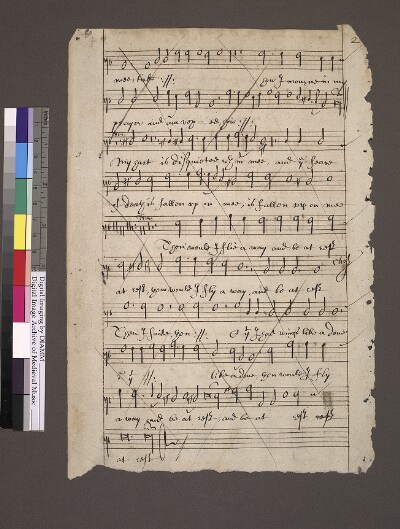 2
how I mourne in my
prayer and am vex - ed, how :||:
My hart is disquieted wth in mee, and ye feare
of death is fallen vp on mee, is fallen vp on mee
Then would I flie a way and be at rest
at rest, then would I fly a way, and be at rest
Then I saide, then :||: O yt I had wings like a doue
O yt :||: like a doue then would I fly
a way and be at rest, and be at rest
at rest
Digital Imaging by DIAMM
Digital Image Archive of Medieval Music